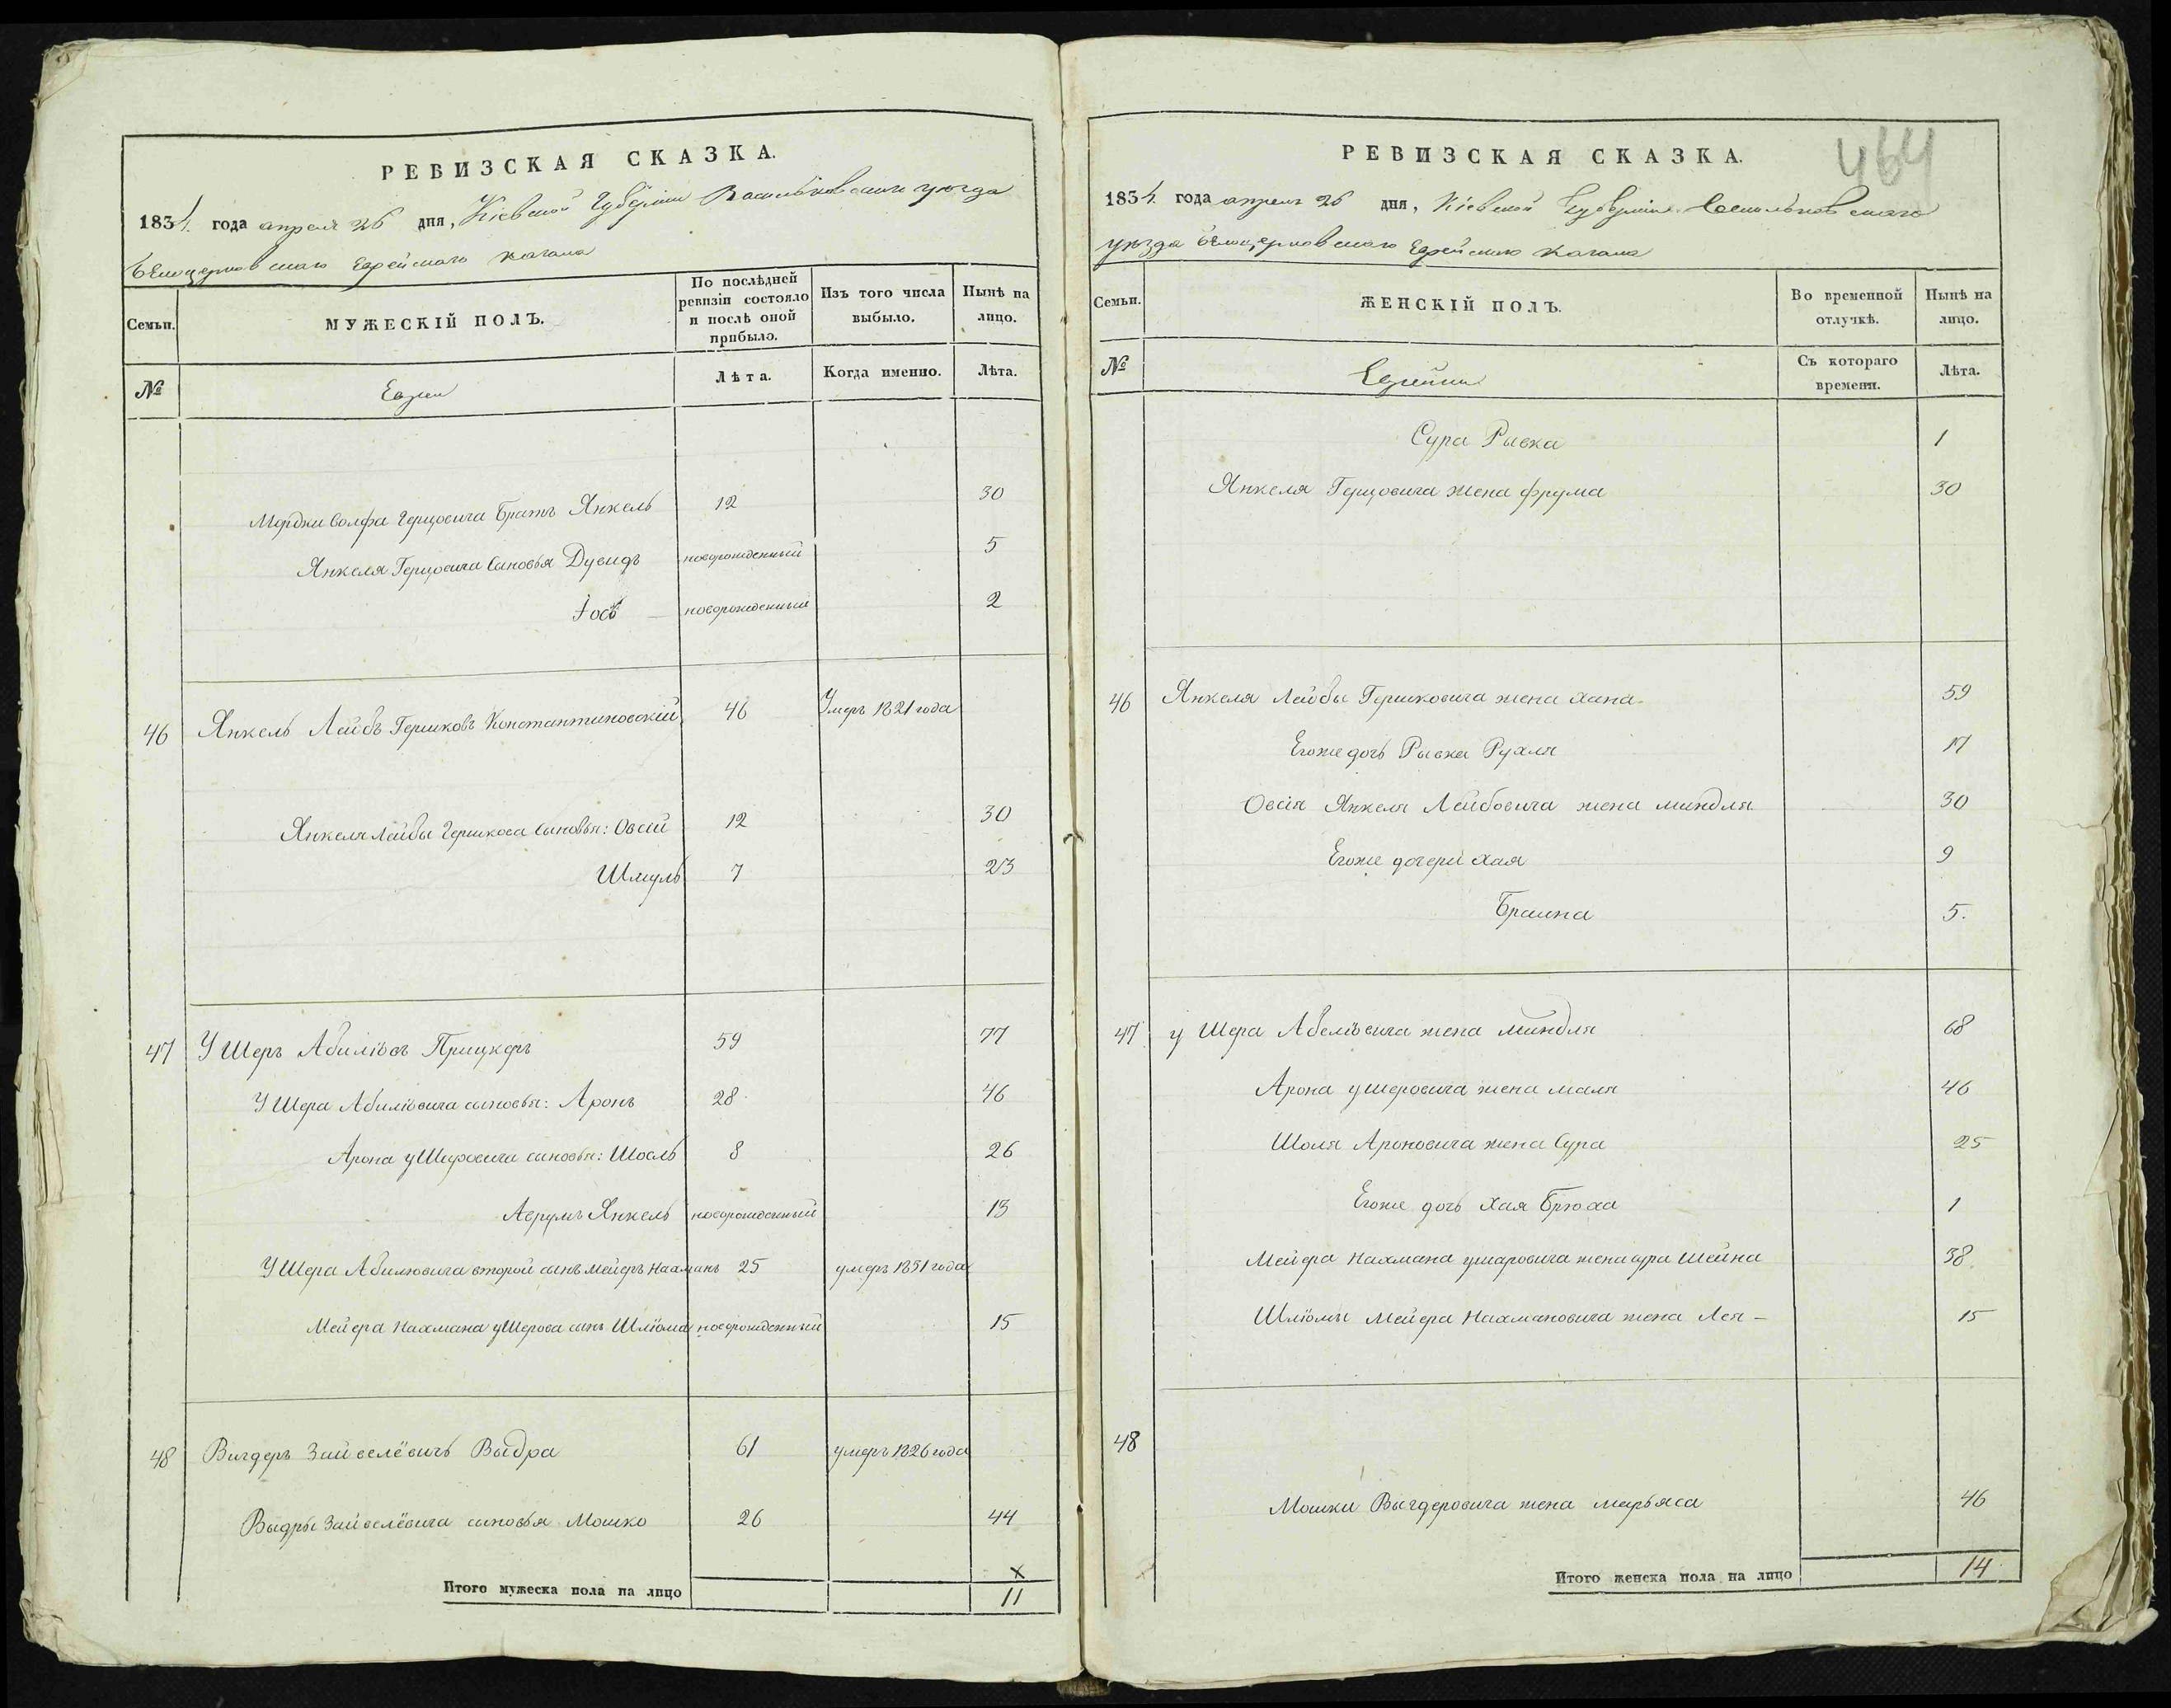 РЕВИЗСКАЯ СКАЗКА.
1834. года апреля 26 дня, Кіевской Губерніи Васильковскаго уезда
Бѣлоцерковскаго Еврейскаго Кагала
Семьи.
МУЖЕСКІЙ ПОЛЪ.
По послѣдней ревизіи состояло и послѣ оной прибыло.
Изъ того числа выбыло.
Нынѣ на лицо.
№
Евреи
Лѣта.
Когда именно.
Лѣта.
Мордки Волфа Герцовича Братъ Янкель 12 30
Янкеля Герцовича Сыновья Дувидъ новорожденный 5
Іось новорожденный 2
46 Янкель Лейбъ Гершковъ Константиновскій 46 Умеръ 1821 года
Янкеля Лейбы Гершкова Сыновья: Овсій 12 30
Шмуль 7 23
47 УШеръ Абиліовъ Прицкеръ 59 77
УШера Абиліовича сыновья: Аронъ 28 46
Арона уШеровича сыновья: Шоель 8 26
Аврумъ Янкель новорожденный 13
УШера Абилювича второй сынъ Мейеръ Нахманъ 25 умеръ 1831 года
Мейера Нахмана уШерова сынъ Шлiома новорожденный 15
48 Вигдеръ Зайвелёвичъ Выдра 61 умеръ 1826 года
Выдры Зайвелёвича сыновья Мошко 26 44
х
Итого мужеска пола на лицо 11
464
РЕВИЗСКАЯ СКАЗКА.
1834. года апреля 26 дня, Кіевской Губерніи Васильковскаго
уезда Бѣлоцерковскаго Еврейскаго Кагала
Семьи.
ЖЕНСКІЙ ПОЛЪ.
Во временной отлучкѣ.
Нынѣ на лицо.
№
Еврейки
Съ котораго времени.
Лѣта.
Сура Рывка 1
Янкеля Герцовича жена фрума 30
46 Янкеля Лейбы Гершковича жена хана 59
Егоже дочь Рывка Рухля 17
Овсія Янкеля Лейбовича жена миндля 30
Егоже дочери хая 9
Браина 5.
47 уШера Абеліовича жена миндля 68
Арона ушеровича жена маля 46
Шоля Ароновича жена Сура 25
Егоже дочь Хая Брюха 1
Мейера Нахмана ушаровича жена сура Шейна 38
Шлiомы Мейера Нахмановича жена Лея - 15
48
Мошки Выгдеровича жена марьяса 46
Итого женска пола на лицо 14